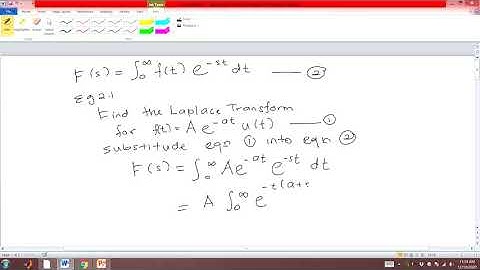 F(s) = ∫₀^∞ f(t) e^{-st} dt —— ②
Eg 2.1
Find the Laplace Transform
for f(t) = A e^{-at} u(t) —— ①
substitute eqn ① into eqn ②
F(s) = ∫₀^∞ A e^{-at} e^{-st} dt
= A ∫₀^∞ e^{-t(a+